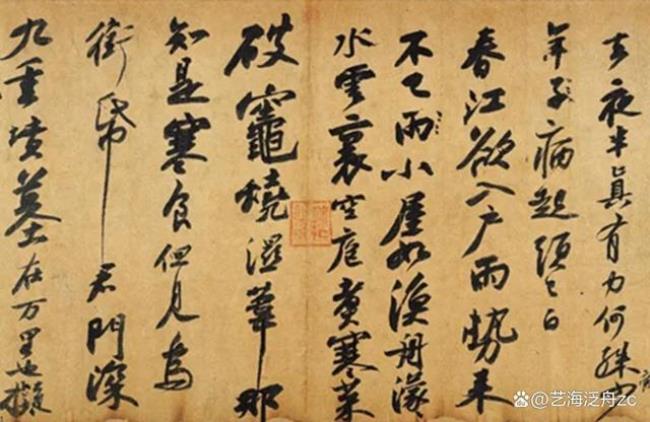 去夜半真有力何殊少
年子病起須已白
春江欲入戶雨勢来
不已雨小屋如漁舟濛
水雲裏空庖煮寒菜
破竈燒濕葦那
知是寒食但見烏
銜帋君門深
九重墳墓在万里也擬
@艺海泛舟zc